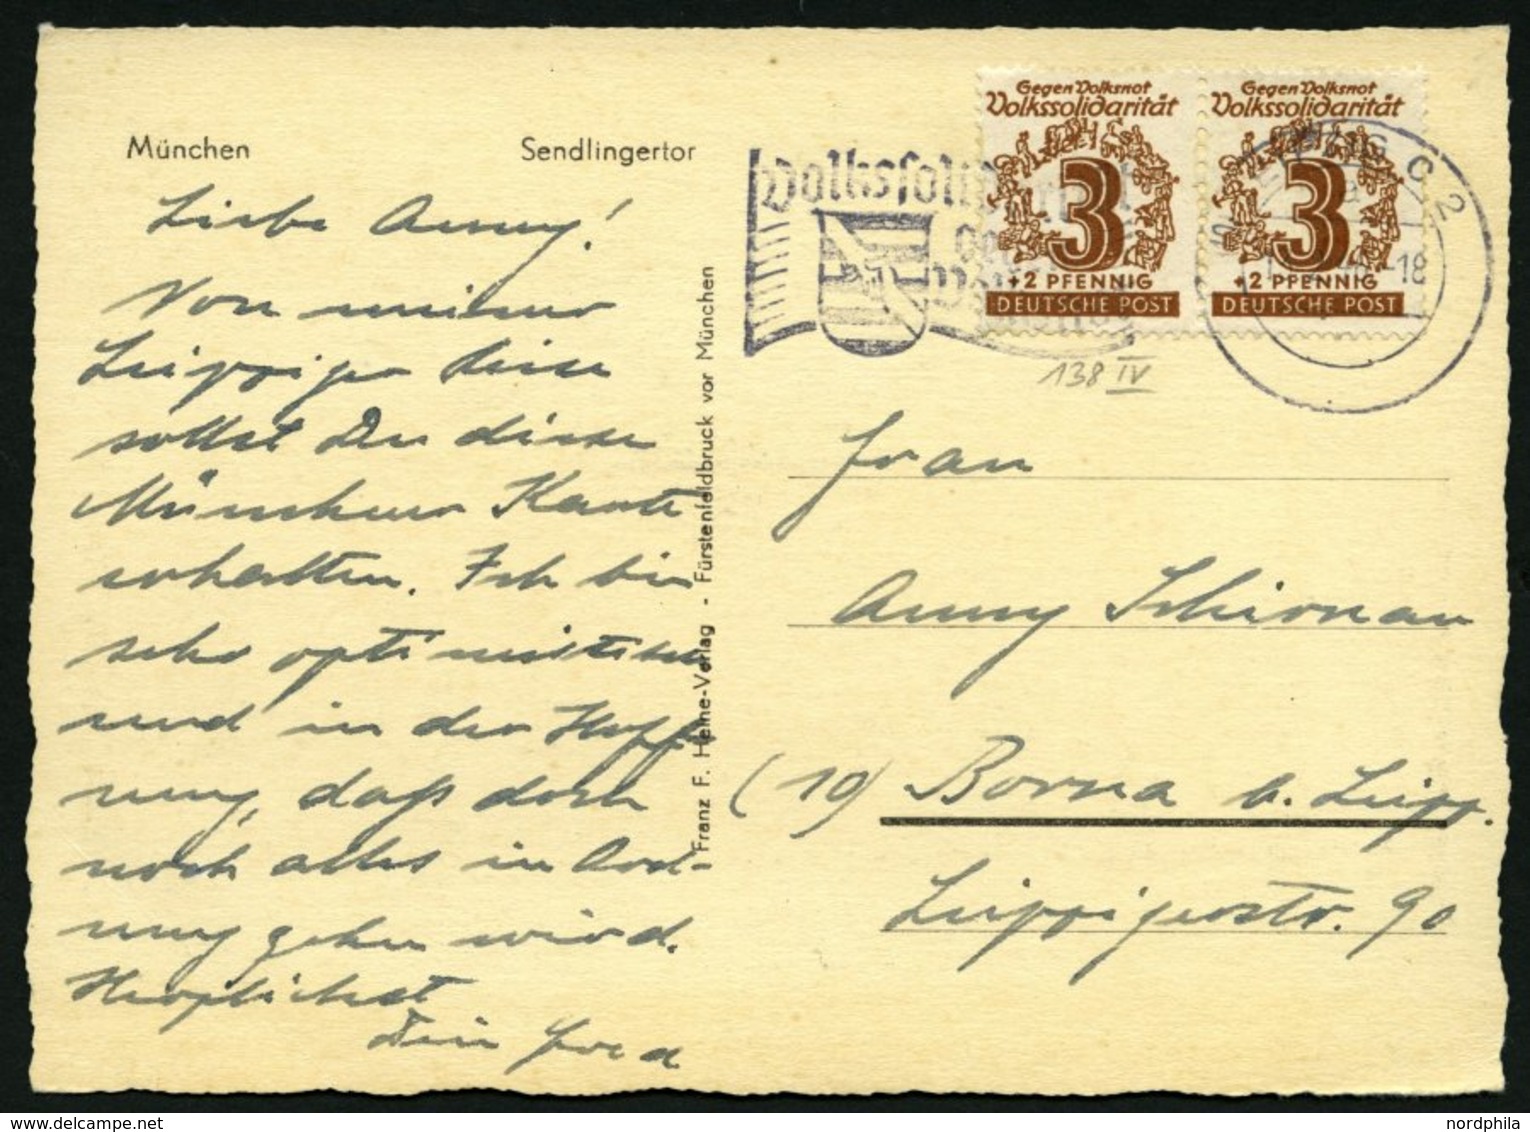 München
Sendlingertor
Liebe Anny!
Von meiner
Leipziger Reise
sollst Du diese
Münchner Karte
erhalten. Ich bin
sehr optimistisch
und in der Hoff-
nung, daß doch
noch alles in Ord-
nung gehen wird.
Herzlichst
Dein Fred
Franz F. Heine-Verlag - Fürstenfeldbruck vor München
Gegen Volksnot
Volkssolidarität
3
+2 PFENNIG
DEUTSCHE POST
Gegen Volksnot
Volkssolidarität
3
+2 PFENNIG
DEUTSCHE POST
LEIPZIG C 2
-18
138 IV
Frau
Anny Schirnau
(10) Borna b. Leipz.
Leipzigerstr. 90
nordphila